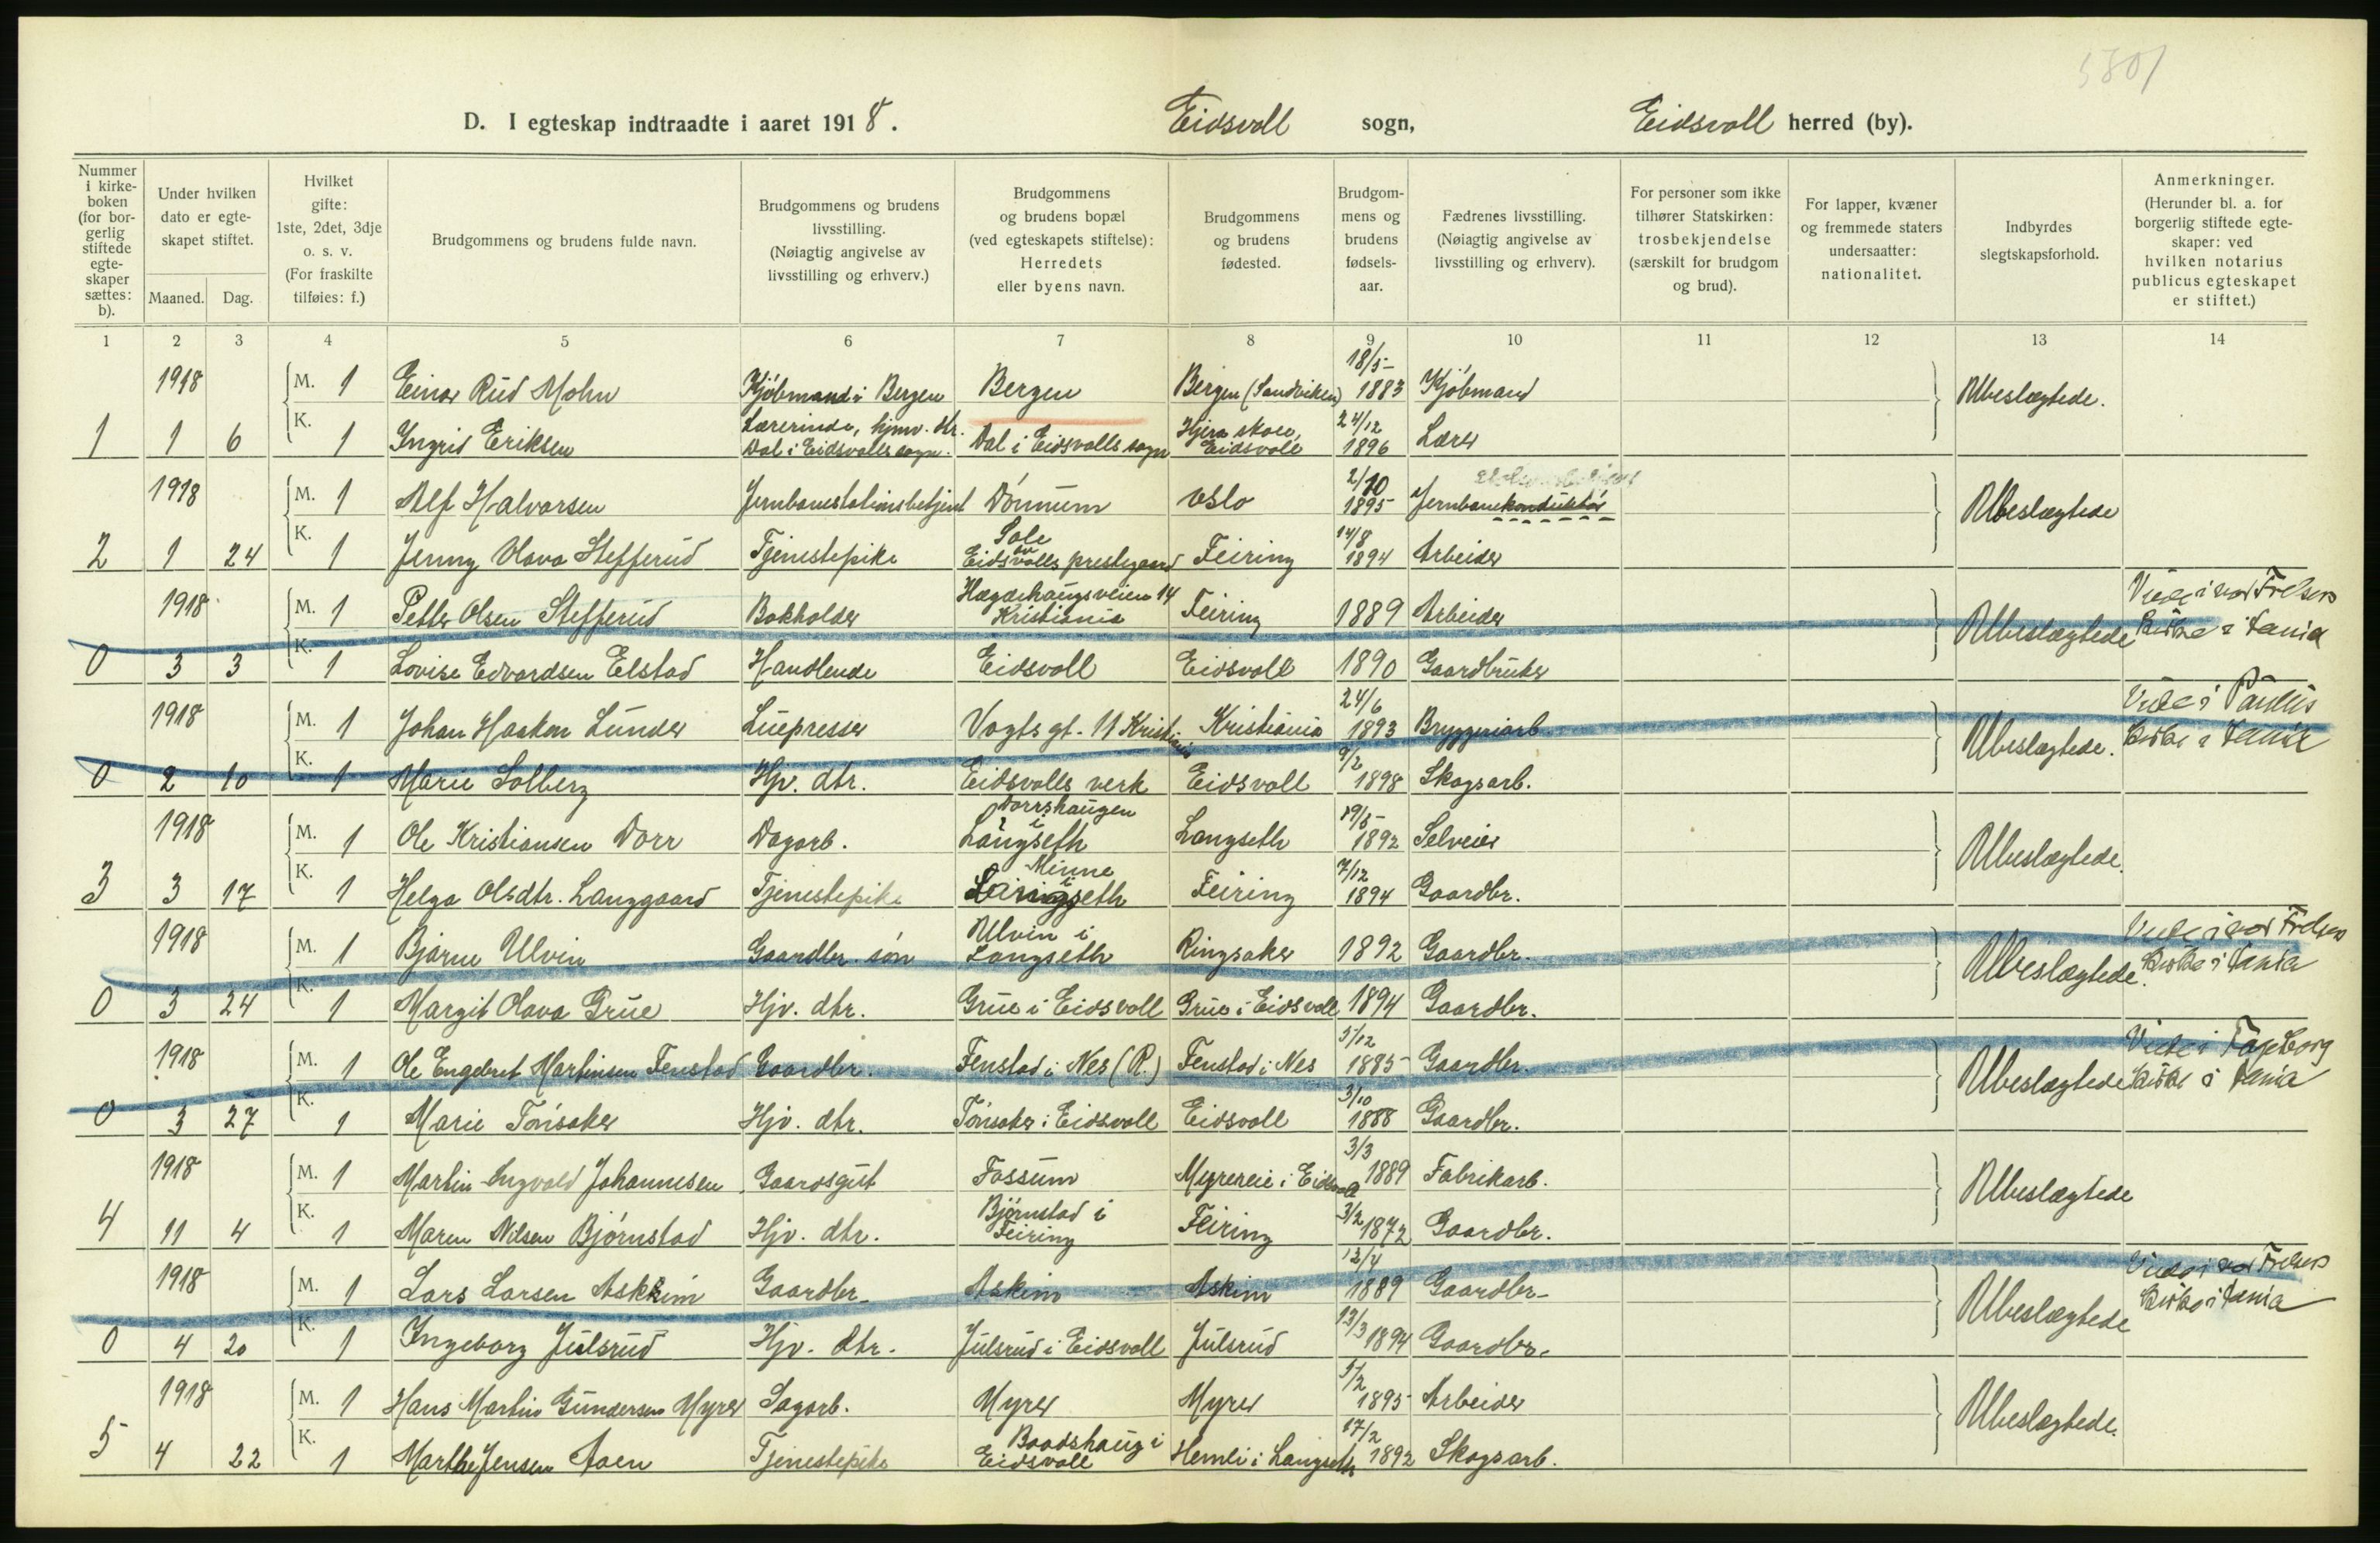 5801
D. I egteskap indtraadte i aaret 1918. Eidsvoll sogn, Eidsvoll herred (by).
Nummer i kirke-boken (for bor-gerlig stiftede egte-skaper sættes: b).
Under hvilken dato er egte-skapet stiftet.
Maaned. Dag.
Hvilket gifte: 1ste, 2det, 3dje o. s. v. (For fraskilte tilføies: f.)
Brudgommens og brudens fulde navn.
Brudgommens og brudens livsstilling. (Nøiagtig angivelse av livsstilling og erhverv.)
Brudgommens og brudens bopæl (ved egteskapets stiftelse): Herredets eller byens navn.
Brudgommens og brudens fødested.
Brudgom-mens og brudens fødsels-aar.
Fædrenes livsstilling. (Nøiagtig angivelse av livsstilling og erhverv).
For personer som ikke tilhører Statskirken: trosbekjendelse (særskilt for brudgom og brud).
For lapper, kvæner og fremmede staters undersaatter: nationalitet.
Indbyrdes slegtskapsforhold.
Anmerkninger. (Herunder bl. a. for borgerlig stiftede egte-skaper: ved hvilken notarius publicus egteskapet er stiftet.)
1 2 3 4 5 6 7 8 9 10 11 12 13 14
1918 M. 1 Einar Rud Mohn Kjöbmand i Bergen Bergen Bergen (Sandviken) 18/5- 1883 Kjöbmand Ubeslegtede.
1 1 6 K. 1 Ingrid Eriksen Lærerinde, hjmv. dtr. Dal i Eidsvolls sogn. Dal i Eidsvolls sogn Hjera skole, Eidsvoll 24/12 1896 Lærer
1918 M. 1 Alf Halvorsen Jernbanestationsbetjent Dönnum Oslo 2/10 1895 Jernbanekonduktör Ubeslegtede
2 1 24 K. 1 Jenny Olava Stefferud Tjenestepike Sole av Eidsvolls prestegaard Feiring 14/8 1894 Arbeider
1918 M. 1 Petter Olsen Stefferud Bokholder Hægdehaugsveien 14 Kristiania Feiring 1889 Arbeider Ubeslegtede Viede i vor Frelsers Kirke i Kania
0 3 3 K. 1 Lovise Edvardsen Elstad Handlende Eidsvoll Eidsvoll 1890 Gaardbruker
1918 M. 1 Johan Haakon Lunder Luepresser Vogts gt. 11 Kristiania Kristiania 24/6 1893 Bryggeriarb. Ubeslegtede. Viede i Paulus Kirke i Kania
0 2 10 K. 1 Marie Solberg Hjv. dtr. Eidsvolls verk Eidsvoll 9/2 1898 Skogsarb.
1918 M. 1 Ole Kristiansen Dorr Dagarb. Dorrshaugen i Langseth Langseth 19/5- 1892 Selveier Ubeslegtede.
3 3 17 K. 1 Helga Olsdtr. Langgaard Tjenestepike Minne i Langseth Feiring 7/12 1894 Gaardbr.
1918 M. 1 Bjarne Ulvin Gaardbr. sön Ulvin i Langseth Ringsaker 1892 Gaardbr. Ubeslegtede. Viede i vor Frelsers Kirke i Kania
0 3 24 K. 1 Margit Olava Grue Hjv. dtr. Grue i Eidsvoll Grue i Eidsvoll 1894 Gaardbr.
1918 M. 1 Ole Engebret Martinsen Fenstad Gaardbr. Fenstad i Nes (R.) Fenstad i Nes 5/12 1885- Gaardbr. Ubeslegtede Viede i Fagerborg Kirke i Kania
0 3 27 K. 1 Marie Tönsaker Hjv. dtr. Tönsaker i Eidsvoll Eidsvoll 3/10 1888 Gaardbr.
1918 M. 1 Martin Ingvald Johannesen Gaardsgut Fossum Myrereie i Eidsvoll 3/3 1889 Fabrikarb. Ubeslegtede
4 11 4 K. 1 Maren Nilsen Björnstad Hjv. dtr. Björnstad i Feiring Feiring 3/2 1872 Gaardbr.
1918 M. 1 Lars Larsen Askim Gaardbr. Askim Askim 12/4 1889 Gaardbr. Ubeslegtede Viede i vor Frelsers Kirke i Kania
0 4 20 K. 1 Ingeborg Julsrud Hjv. dtr. Julsrud i Eidsvoll Julsrud 13/3 1894 Gaardbr.
1918 M. 1 Hans Martin Gundersen Myrer Sagarb. Myrer Myrer 5/2 1895 Arbeider Ubeslegtede.
5 4 22 K. 1 Marthe Jensen Moen Tjenestepike Baadshaug i Eidsvoll Hemli i Langseth 17/2 1892 Skogsarb.